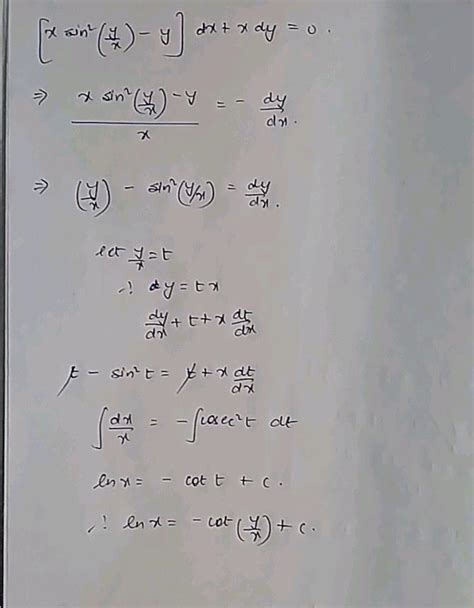 [x sin²(y/x) - y] dx + x dy = 0.
⇒ (x sin²(y/x) - y)/x = - dy/dx.
⇒ (y/x) - sin²(y/x) = dy/dx.
let y/x = t
∴ y = tx
dy/dx + t + x dt/dx
t - sin²t = t + x dt/dx
∫ dx/x = -∫ cosec²t dt
ln x = - cot t + c.
∴ ln x = - cot (y/x) + c.